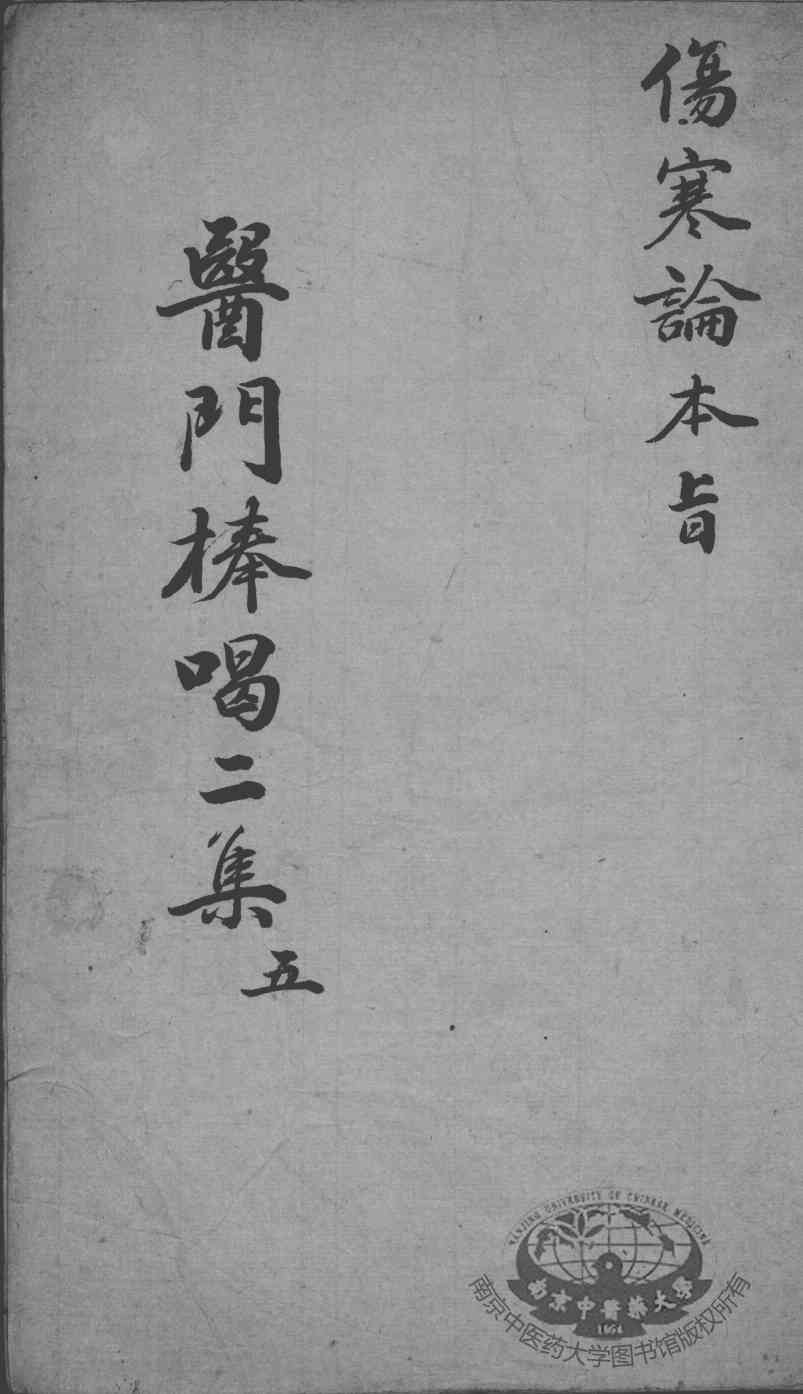 傷寒論本旨
醫門棒喝二集
五
NANJING UNIVERSITY OF CHINESE MEDICINE
南京中醫藥大學
1954
南京中医药大学图书馆版权所有